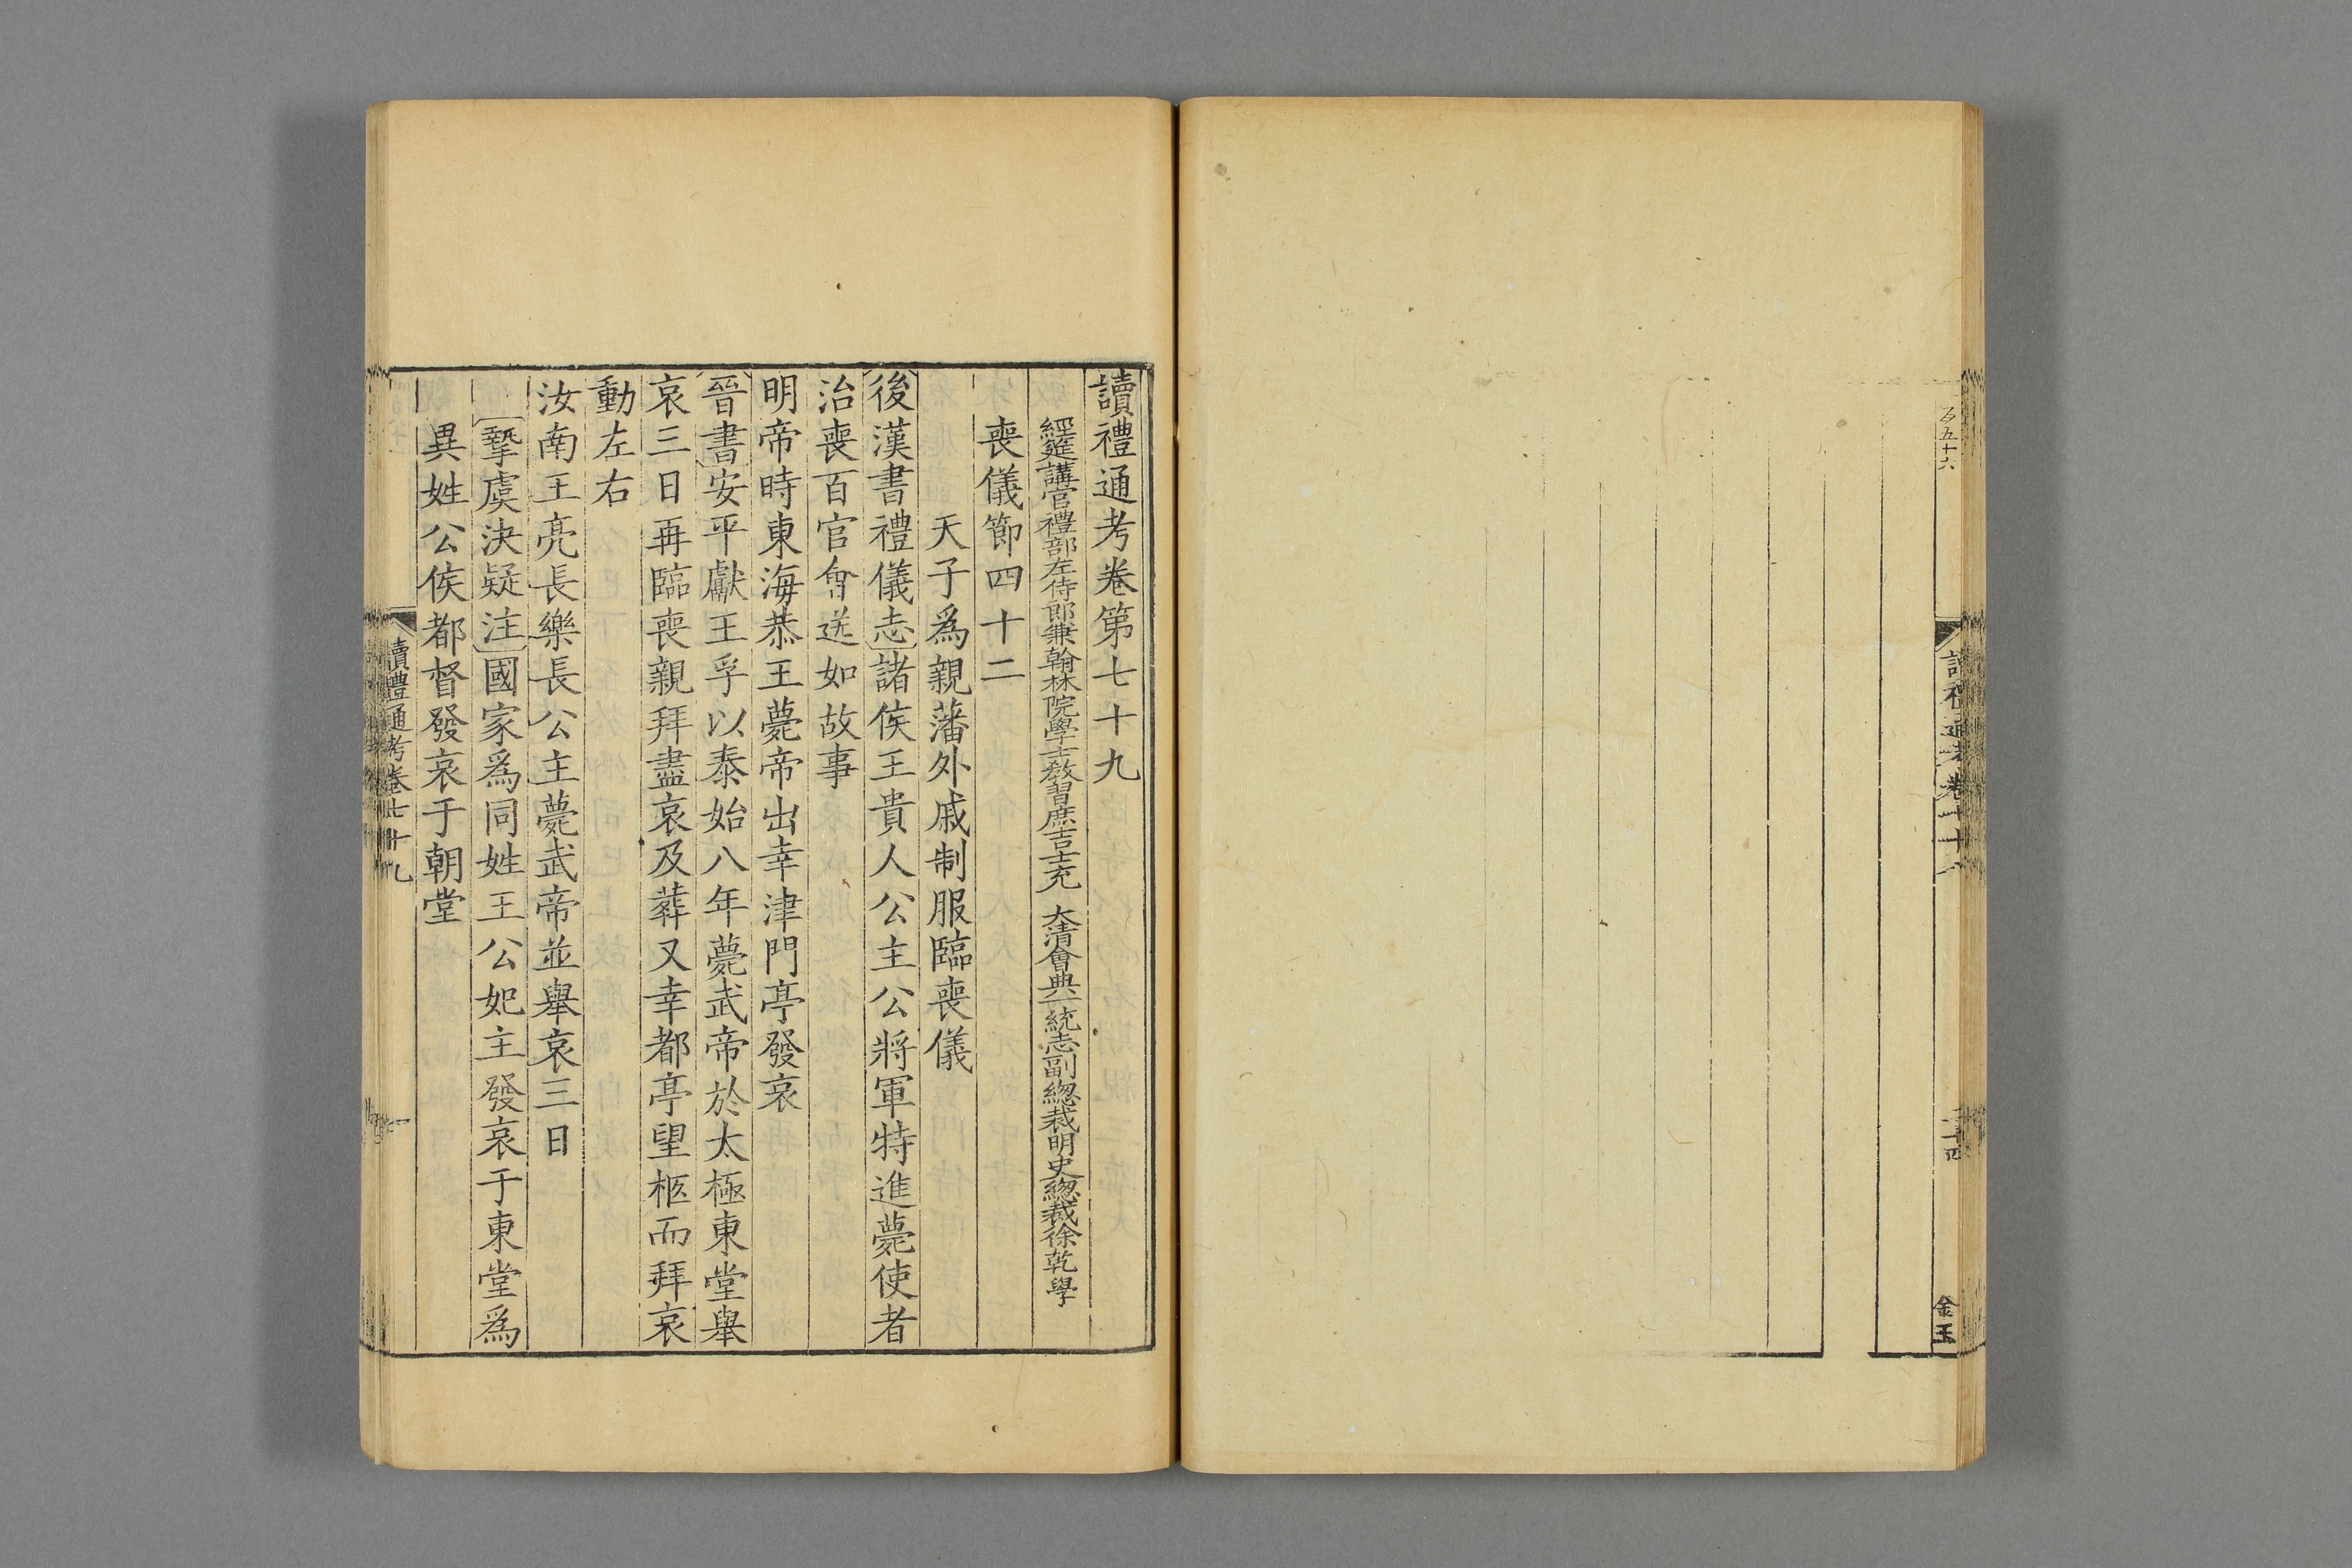 百五十六
讀禮通考卷七十八
二十四
金玉
讀禮通考卷第七十九
經筵講官禮部左侍郎兼翰林院學士教習庶吉士充　大清會典一統志副總裁明史總裁徐乾學
喪儀節四十二
天子爲親藩外戚制服臨喪儀
後漢書禮儀志諸侯王貴人公主公將軍特進薨使者
治喪百官會送如故事
明帝時東海恭王薨帝出幸津門亭發哀
晉書安平獻王孚以泰始八年薨武帝於太極東堂舉
哀三日再臨喪親拜盡哀及葬又幸都亭望柩而拜哀
動左右
汝南王亮長樂長公主薨武帝並舉哀三日
摯虞決疑注國家爲同姓王公妃主發哀于東堂爲
異姓公侯都督發哀于朝堂
讀禮通考卷七十九
一